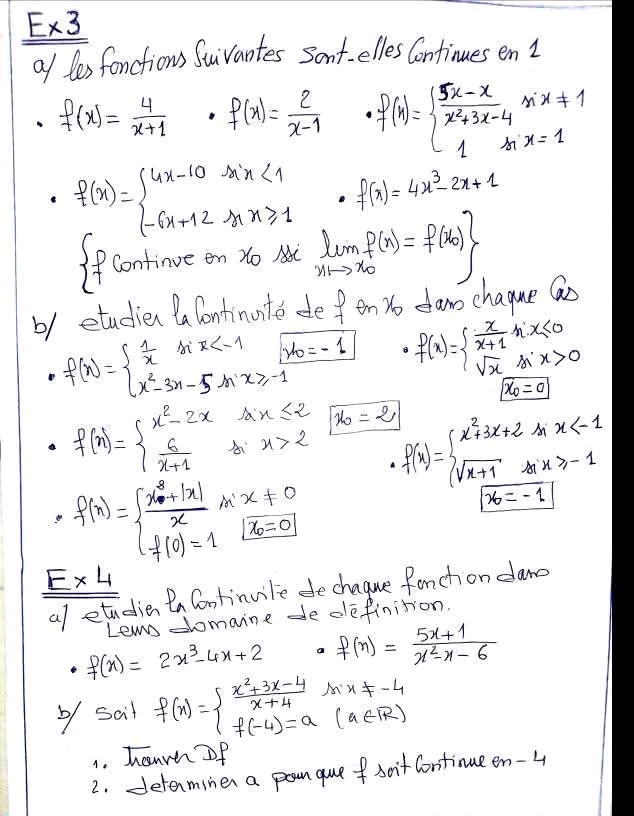 Ex3
a/ les fonctions Suivantes sont-elles Continues en 1
• f(x) = 4/(x+1) • f(x) = 2/(x-1) • f(x) = { (5x-x)/(x²+3x-4) si x ≠ 1
1 si x = 1
• f(x) = { 4x-10 si x < 1
-6x+12 si x ≥ 1 • f(x) = 4x³-2x+1
{ f continue en x₀ ssi lim f(x) = f(x₀) }
x→x₀
b/ etudier la Continuité de f en x₀ dans chaque Cas
• f(x) = { 1/x si x<-1 x₀ = -1
x²-3x-5 si x≥-1
• f(x) = { x/(x+1) si x<0
√x si x>0
x₀=0
• f(x) = { x²-2x si x ≤ 2 x₀ = 2
6/(x+1) si x > 2
• f(x) = { x²+3x+2 si x <-1
√x+1 si x ≥-1
x₀ = -1
• f(x) = { (x⁸+|x|)/x si x ≠ 0
f(0) = 1 x₀=0
Ex 4
a/ etudier la Continuité de chaque fonction dans
Leurs domaine de définition.
• f(x) = 2x³-4x+2 • f(x) = (5x+1)/(x²-x-6)
b/ Soit f(x) = { (x²+3x-4)/(x+4) si x ≠ -4
f(-4) = a (a∈ℝ)
1. Trouver Df
2. determiner a pour que f soit Continue en -4